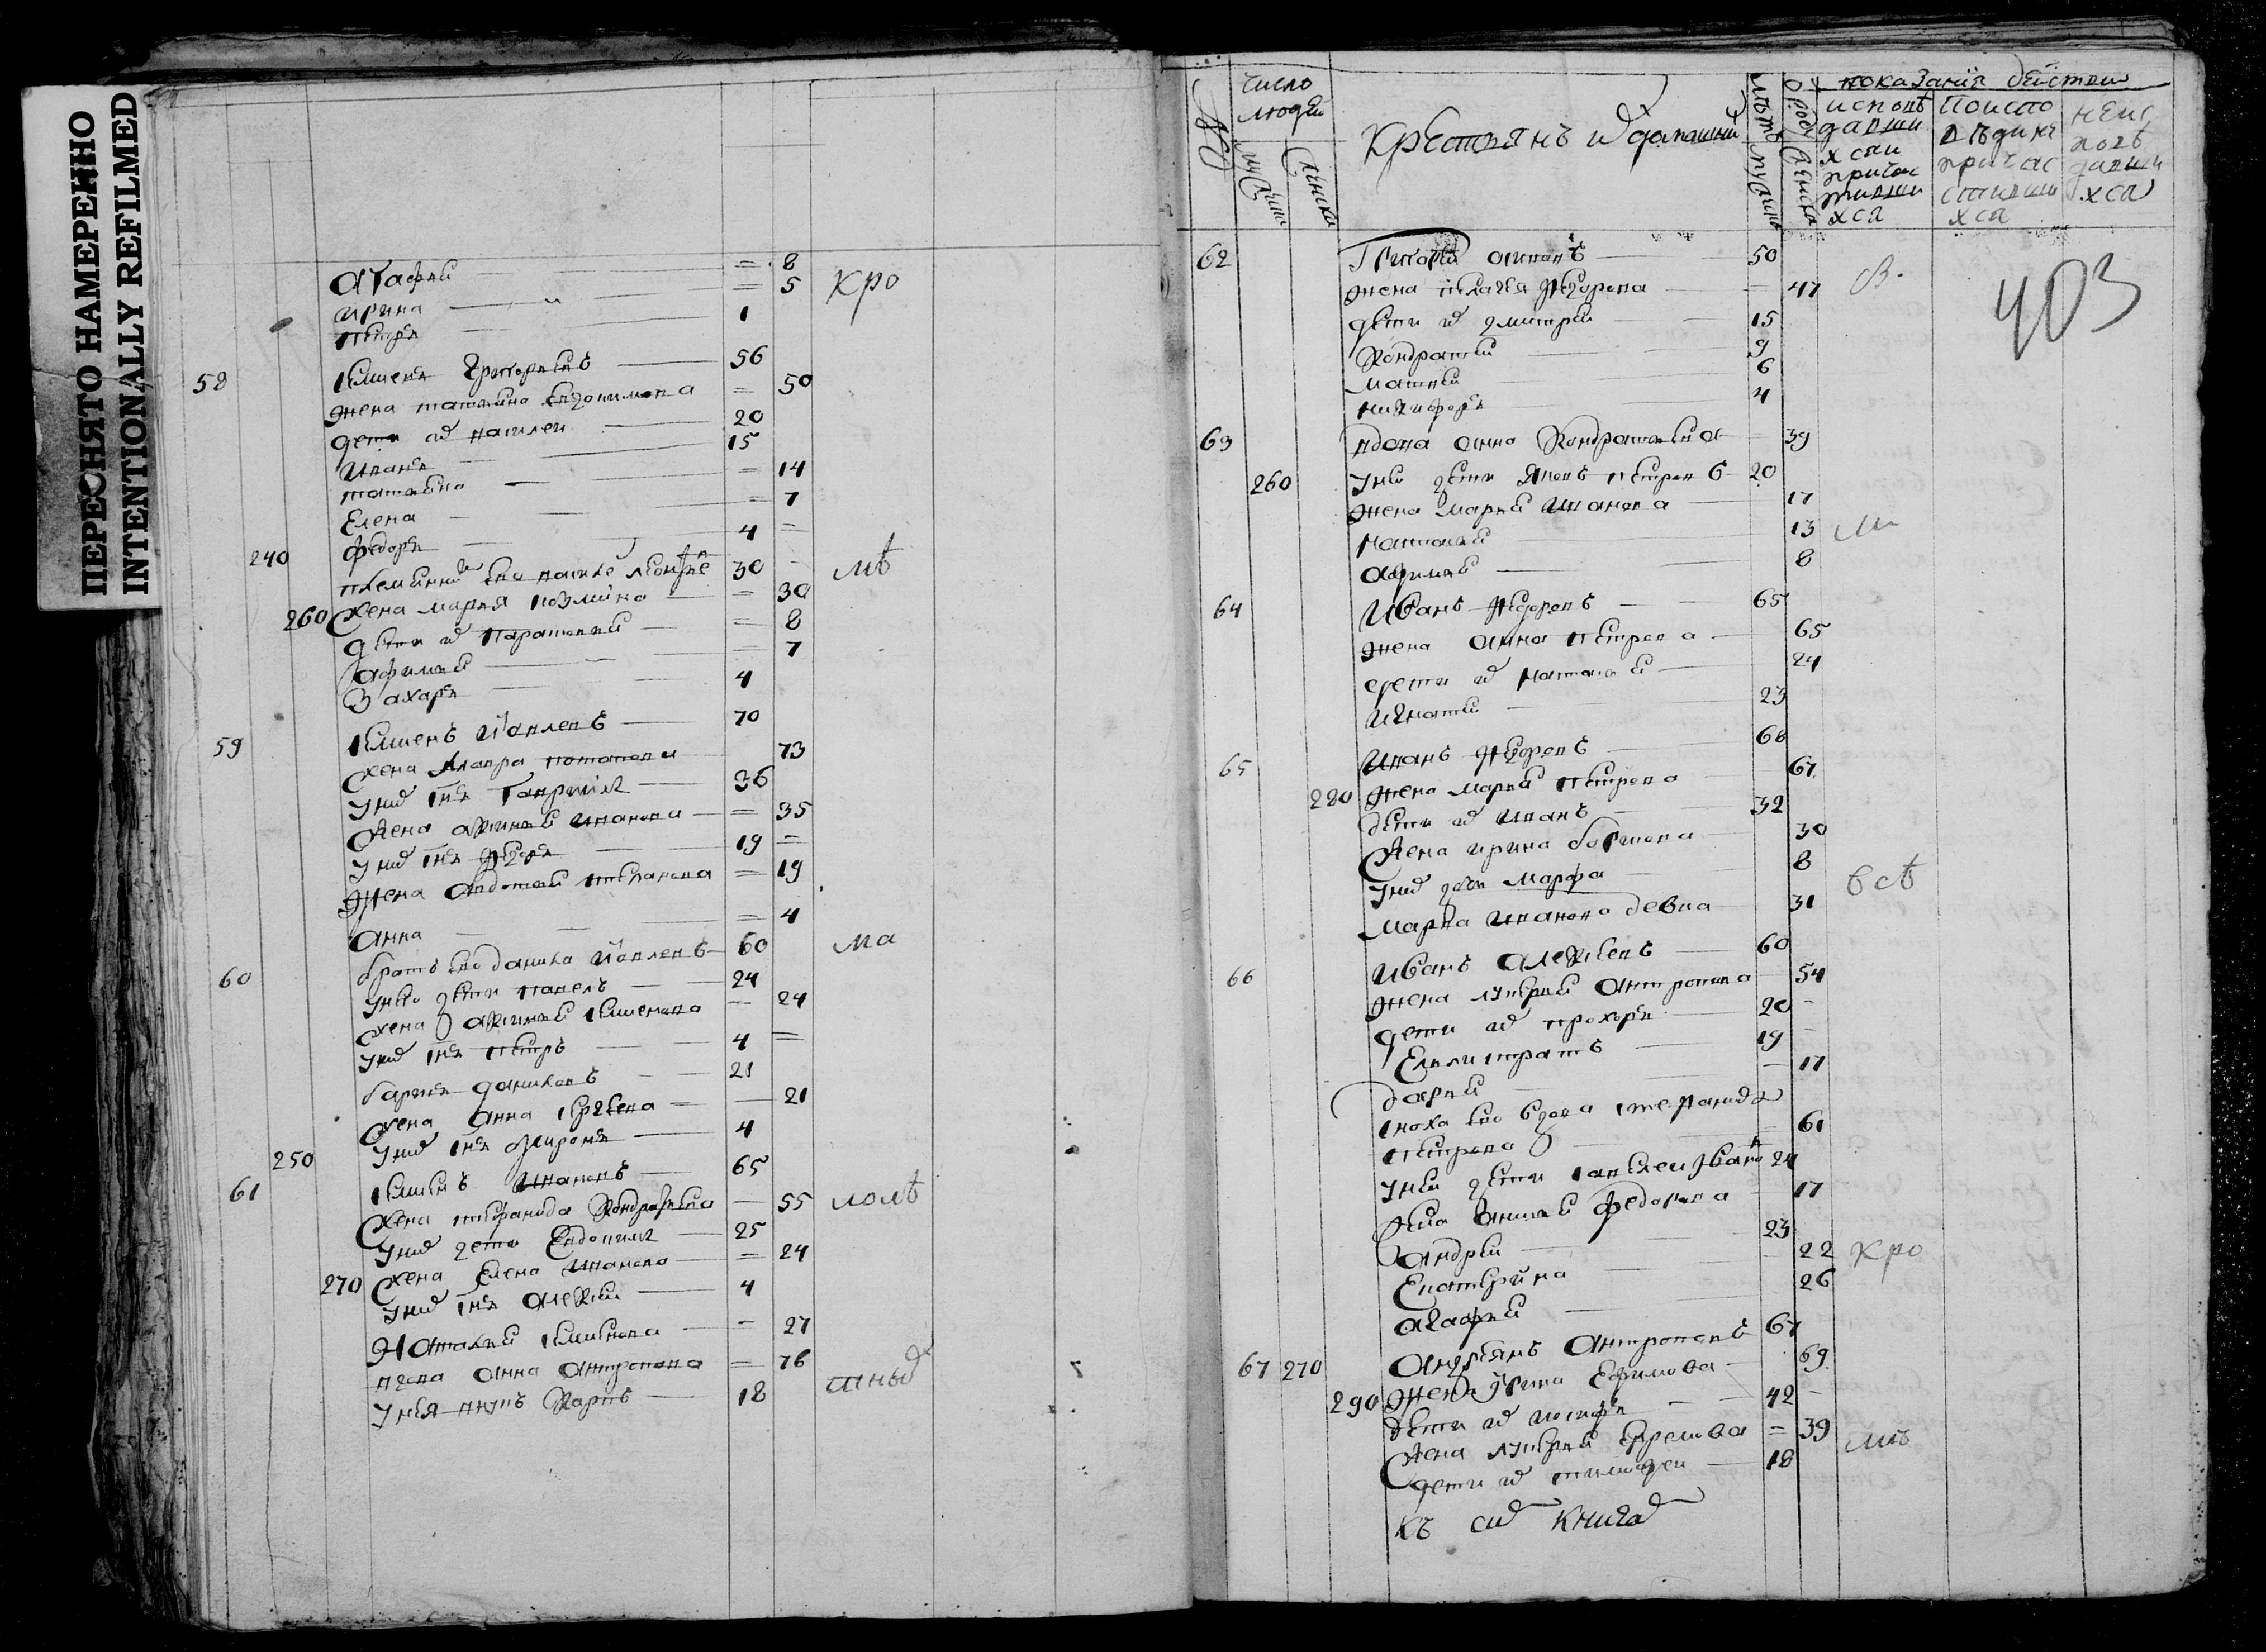 ПЕРЕСНЯТО НАМЕРЕННО
INTENTIONALLY REFILMED
Агафия = 8
Ирина = 5 кро
Петръ 1
58 Семенъ Григорьевъ 56
жена Татьяна Евдокимова = 50
дети их Василеи 20
Иванъ 15
Татьяна = 14
Елена = 7
240 Федоръ 4 =
племянник ево 30 мѣ
260 жена Марья Козмина = 30
дети их Парасковия = 8
Афимия 7
Захаръ 4
59 Семенъ Иовлевъ 70
жена Мавра Потапова 73
у них снъ Гаврила 36
жена Аксинья Иванова = 35
у них снъ Федоръ 19 =
жена Авдотья Степанова = 19
Анна = 4
60 братъ ево Данила Иовлевъ 60 ма
у нево дети Павелъ 24
жена Аксинья Семенова = 24
у них снъ Петръ 4 =
Даниловъ 21
жена Анна Сергеева 21
250 у них снъ Миронъ 4
61 Семенъ Ивановъ 65
жена Степанида Кондратьева 55 ломѣ
у них дети Евдокимъ 25
270 жена Елена Иванова = 24
у них снъ Алексеи 4
Наталья Семенова = 27
вдова Анна Антропова = 76
у нея внукъ Карпъ 18
число людей
мужеска женска
крестьянъ и домашних
лѣтъ мужска
женска
показаниѣ действи
исповѣдавшихся и причастившихся
по исповѣди не причастившихся
не исповѣдавшихся
403
62 Григорей Осиповъ 50
жена Пелагея Федорова = 47 В.
дети их Дмитреи 15
Кондратеи 9
Матвеи 6
Никифоръ 4
63 вдова Анна Кондратьева 39
260 у неи дети Яковъ Петровъ 20
жена Марья Иванова 17
Наталья 13
Афимия 8
64 Иванъ Федоровъ 65
жена Анна Петрова 65
дети их Наталья 24
Игнатеи 23
65 Иванъ Федоровъ 68
280 жена Марья Петрова 67
дети их Иванъ 32
жена Ирина Борисова 30
у них дочь Марфа 8
Марья Иванова девка 31 всѣ
66 Иванъ Алексеевъ 60
жена Лукерья Антропова 54
дети их Прохоръ 20
Евлистратъ 19
Дарья 17
сноха ево вдова Степанида
Петрова 61
у неи дети Савелеи Ивано 24
жена Федорова 17
Андреи 23
Екатерина 22 кро
Агафия 26
67 270 Андреянъ Антроповъ 67
290 жена Ирина Ефимова 69
дети их Иосифъ 42
жена Лукерья Ефремова = 39
дети их Тимофеи 18
къ сей книге